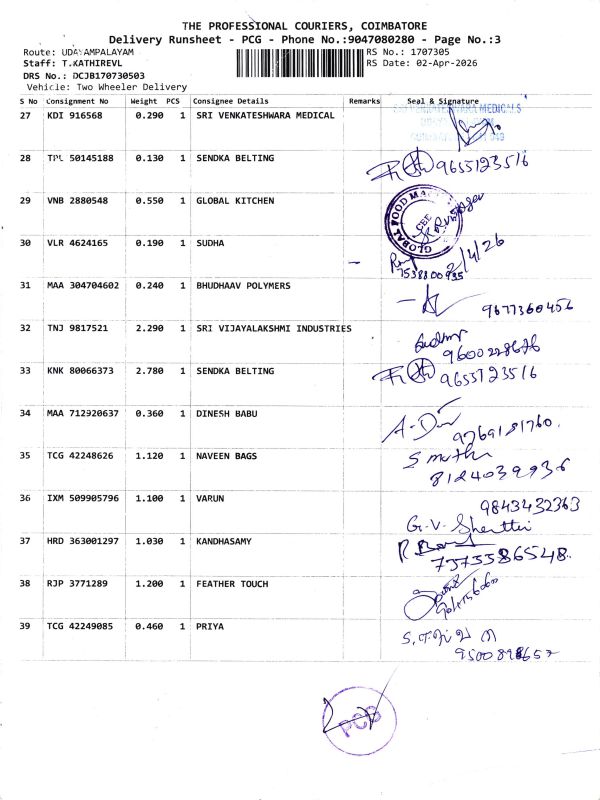 THE PROFESSIONAL COURIERS, COIMBATORE
Delivery Runsheet - PCG - Phone No.:9047080280 - Page No.:3
Route: UDAYAMPALAYAM
RS No.: 1707305
Staff: T.KATHIREVL
RS Date: 02-Apr-2026
DRS No.: DCJB170730503
Vehicle: Two Wheeler Delivery
S No Consignment No Weight PCS Consignee Details Remarks Seal & Signature
27 KDI 916568 0.290 1 SRI VENKATESHWARA MEDICAL
28 TPL 50145188 0.130 1 SENDKA BELTING 9655123516
29 VNB 2880548 0.550 1 GLOBAL KITCHEN
GLOBAL FOOD
CBE
30 VLR 4624165 0.190 1 SUDHA
2/4/26
31 MAA 304704602 0.240 1 BHUDHAAV POLYMERS
9677360456
32 TNJ 9817521 2.290 1 SRI VIJAYALAKSHMI INDUSTRIES
33 KNK 80066373 2.780 1 SENDKA BELTING 9655123516
34 MAA 712920637 0.360 1 DINESH BABU
35 TCG 42248626 1.120 1 NAVEEN BAGS
8124039936
36 IXM 509905796 1.100 1 VARUN 9843432363
G.V.
37 HRD 363001297 1.030 1 KANDHASAMY
7373586548
38 RJP 3771289 1.200 1 FEATHER TOUCH
39 TCG 42249085 0.460 1 PRIYA
PCG